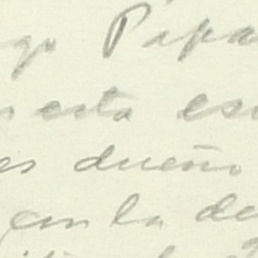 go Papa
esta es
es dueño
con la de